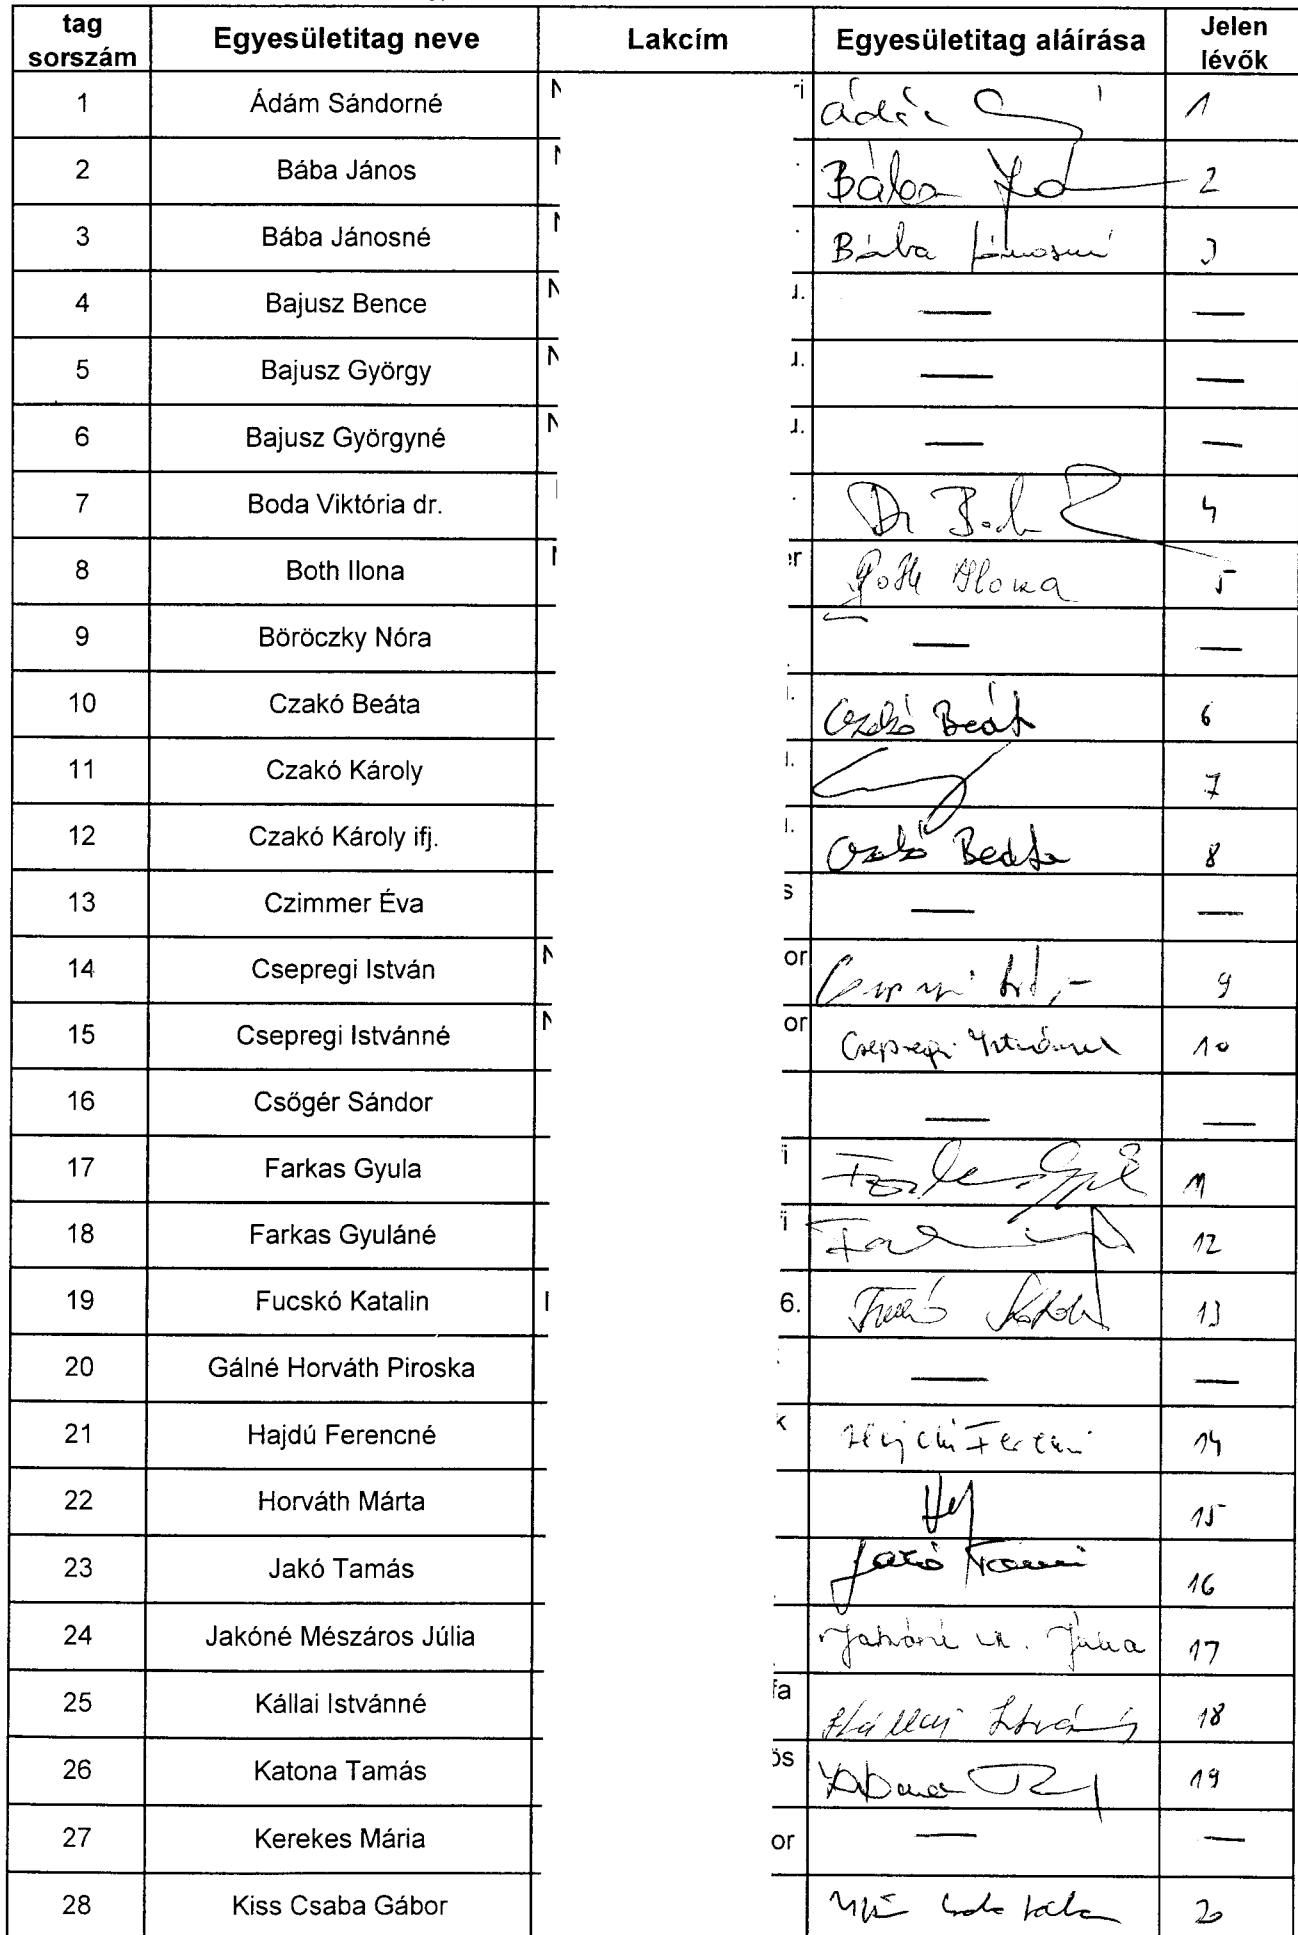 tag sorszám Egyesületitag neve Lakcím Egyesületitag aláírása Jelen lévők
1 Ádám Sándorné 1
2 Bába János Bába 2
3 Bába Jánosné Bába Jánosné 3
4 Bajusz Bence — —
5 Bajusz György — —
6 Bajusz Györgyné — —
7 Boda Viktória dr. Dr 4
8 Both Ilona Both Ilona 5
9 Böröczky Nóra — —
10 Czakó Beáta Czakó Beáta 6
11 Czakó Károly 7
12 Czakó Károly ifj. Czakó Beáta 8
13 Czimmer Éva — —
14 Csepregi István or 9
15 Csepregi Istvánné or Csepregi Istvánné 10
16 Csőgér Sándor — —
17 Farkas Gyula 11
18 Farkas Gyuláné 12
19 Fucskó Katalin 6. 13
20 Gálné Horváth Piroska — —
21 Hajdú Ferencné 14
22 Horváth Márta 15
23 Jakó Tamás Jakó 16
24 Jakóné Mészáros Júlia Jakóné M. Júlia 17
25 Kállai Istvánné fa 18
26 Katona Tamás ös 19
27 Kerekes Mária or — —
28 Kiss Csaba Gábor 20